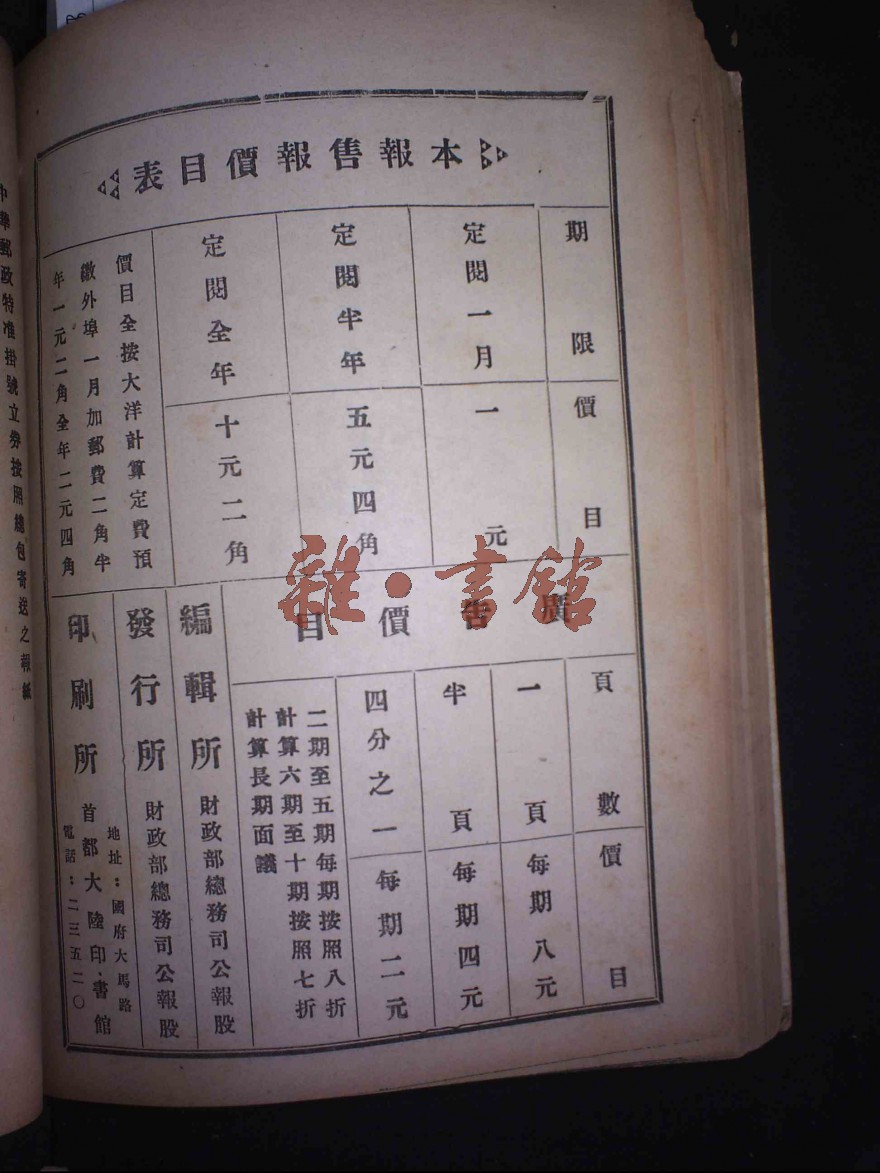 本報售報價目表
期限
價目
定閱一月
一元
定閱半年
五元四角
定閱全年
十元二角
價目全按大洋計算定費預
繳外埠一月加郵費二角半
年一元二角全年二元四角
廣告價目
頁數
價目
一頁
每期八元
半頁
每期四元
四分之一
每期二元
二期至五期每期按照八折
計算六期至十期按照七折
計算長期面議
編輯所
財政部總務司公報股
發行所
財政部總務司公報股
印刷所
地址：國府大馬路
首都大陸印書館
電話：二三五二〇
中華郵政特准掛號立券按照總包寄送之報紙
雜·書館